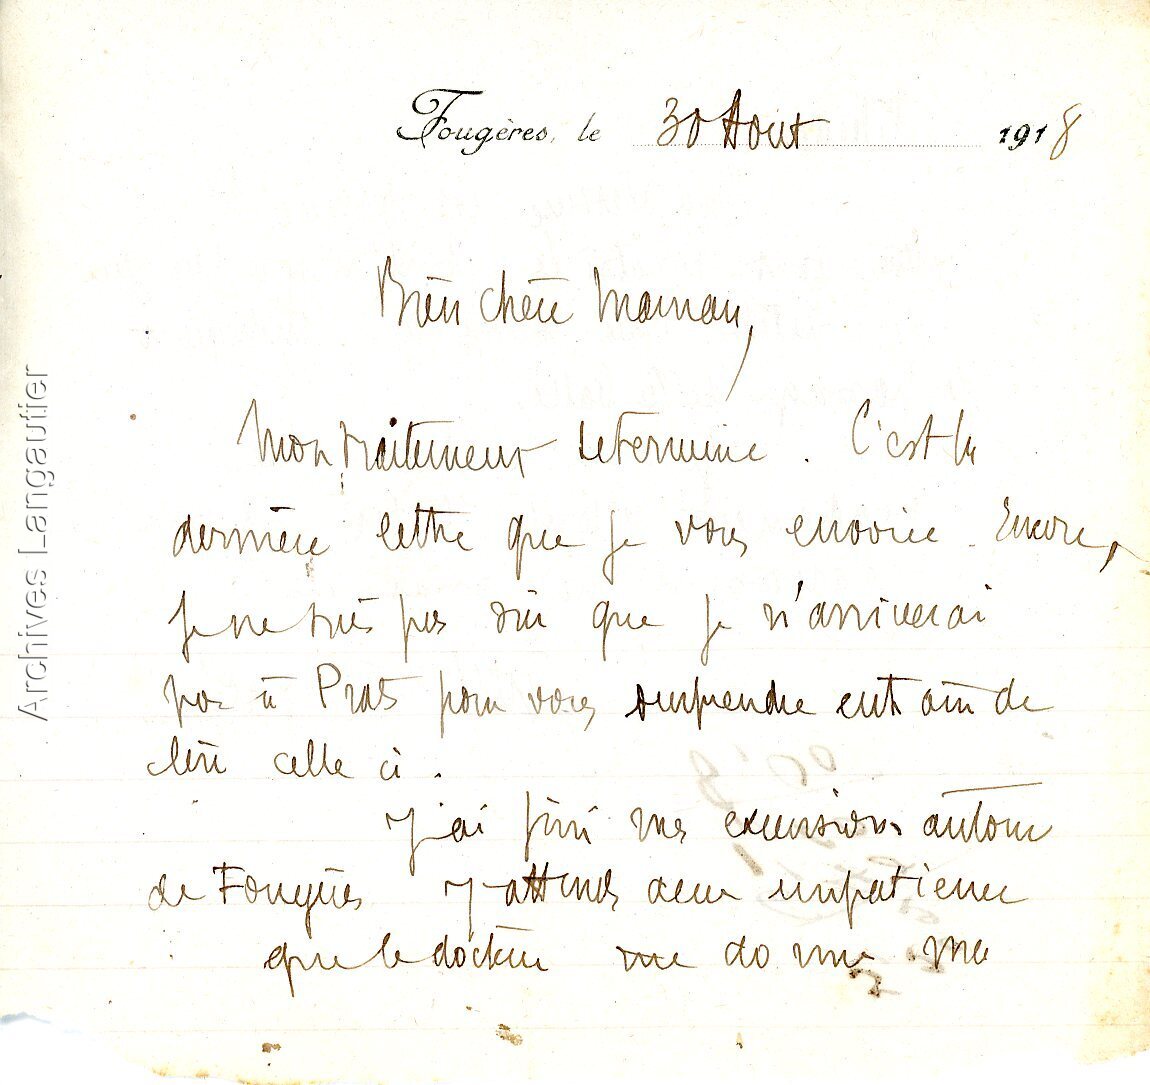 Fougères, le 30 Aout 1918
Bien chère Maman,
Mon traitement se termine. C'est la
dernière lettre que je vous envoie. Encore,
je ne suis pas sûr que je n'arriverai
pas à Prats pour vous surprendre en train de
lire celle ci.
J'ai fini mes excursions autour
de Fougères J'attends avec impatience
que le docteur me donne ma
Archives Langautier